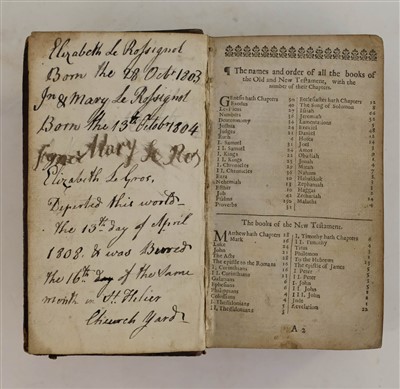 Elizabeth Le Rossignol
Born the 28 Octr 1803
Jn & Mary Le Rossignol
Born the 13th Octobr 1804
Mary Le
Elizabeth Le Gros.
Departed this world
The 13th day of April
1808. & was Burred
the 16th day of the Same
month in St. Helier
Church Yard
¶ The names and order of all the books of
the Old and New Testament, with the
number of their Chapters.
Genesis hath Chapters 50
Exodus 40
Leviticus 27
Numbers 36
Deuteronomy 34
Joshua 24
Judges 21
Ruth 4
I. Samuel 31
II. Samuel 24
I. Kings 22
II. Kings 25
I. Chronicles 29
II. Chronicles 36
Ezra 10
Nehemiah 13
Esther 10
Job 42
Psalms 150
Proverbs 31
Ecclesiastes hath Chapters 12
The song of Solomon 8
Isaiah 66
Jeremiah 52
Lamentations 5
Ezekiel 48
Daniel 12
Hosea 14
Joel 3
Amos 9
Obadiah 1
Jonah 4
Micah 7
Nahum 3
Habakkuk 3
Zephaniah 3
Haggai 2
Zechariah 14
Malachi 4
The books of the New Testament.
Matthew hath Chapters 28
Mark 16
Luke 24
John 21
The Acts 28
The epistle to the Romans 16
I. Corinthians 16
II. Corinthians 13
Galatians 6
Ephesians 6
Philippians 4
Colossians 4
I. Thessalonians 5
II. Thessalonians 3
I. Timothy hath Chapters 6
II. Timothy 4
Titus 3
Philemon 1
To the Hebrews 13
The epistle of James 5
I. Peter 5
II. Peter 3
I. John 5
II. John 1
III. John 1
Jude 1
Revelation 22
A 2